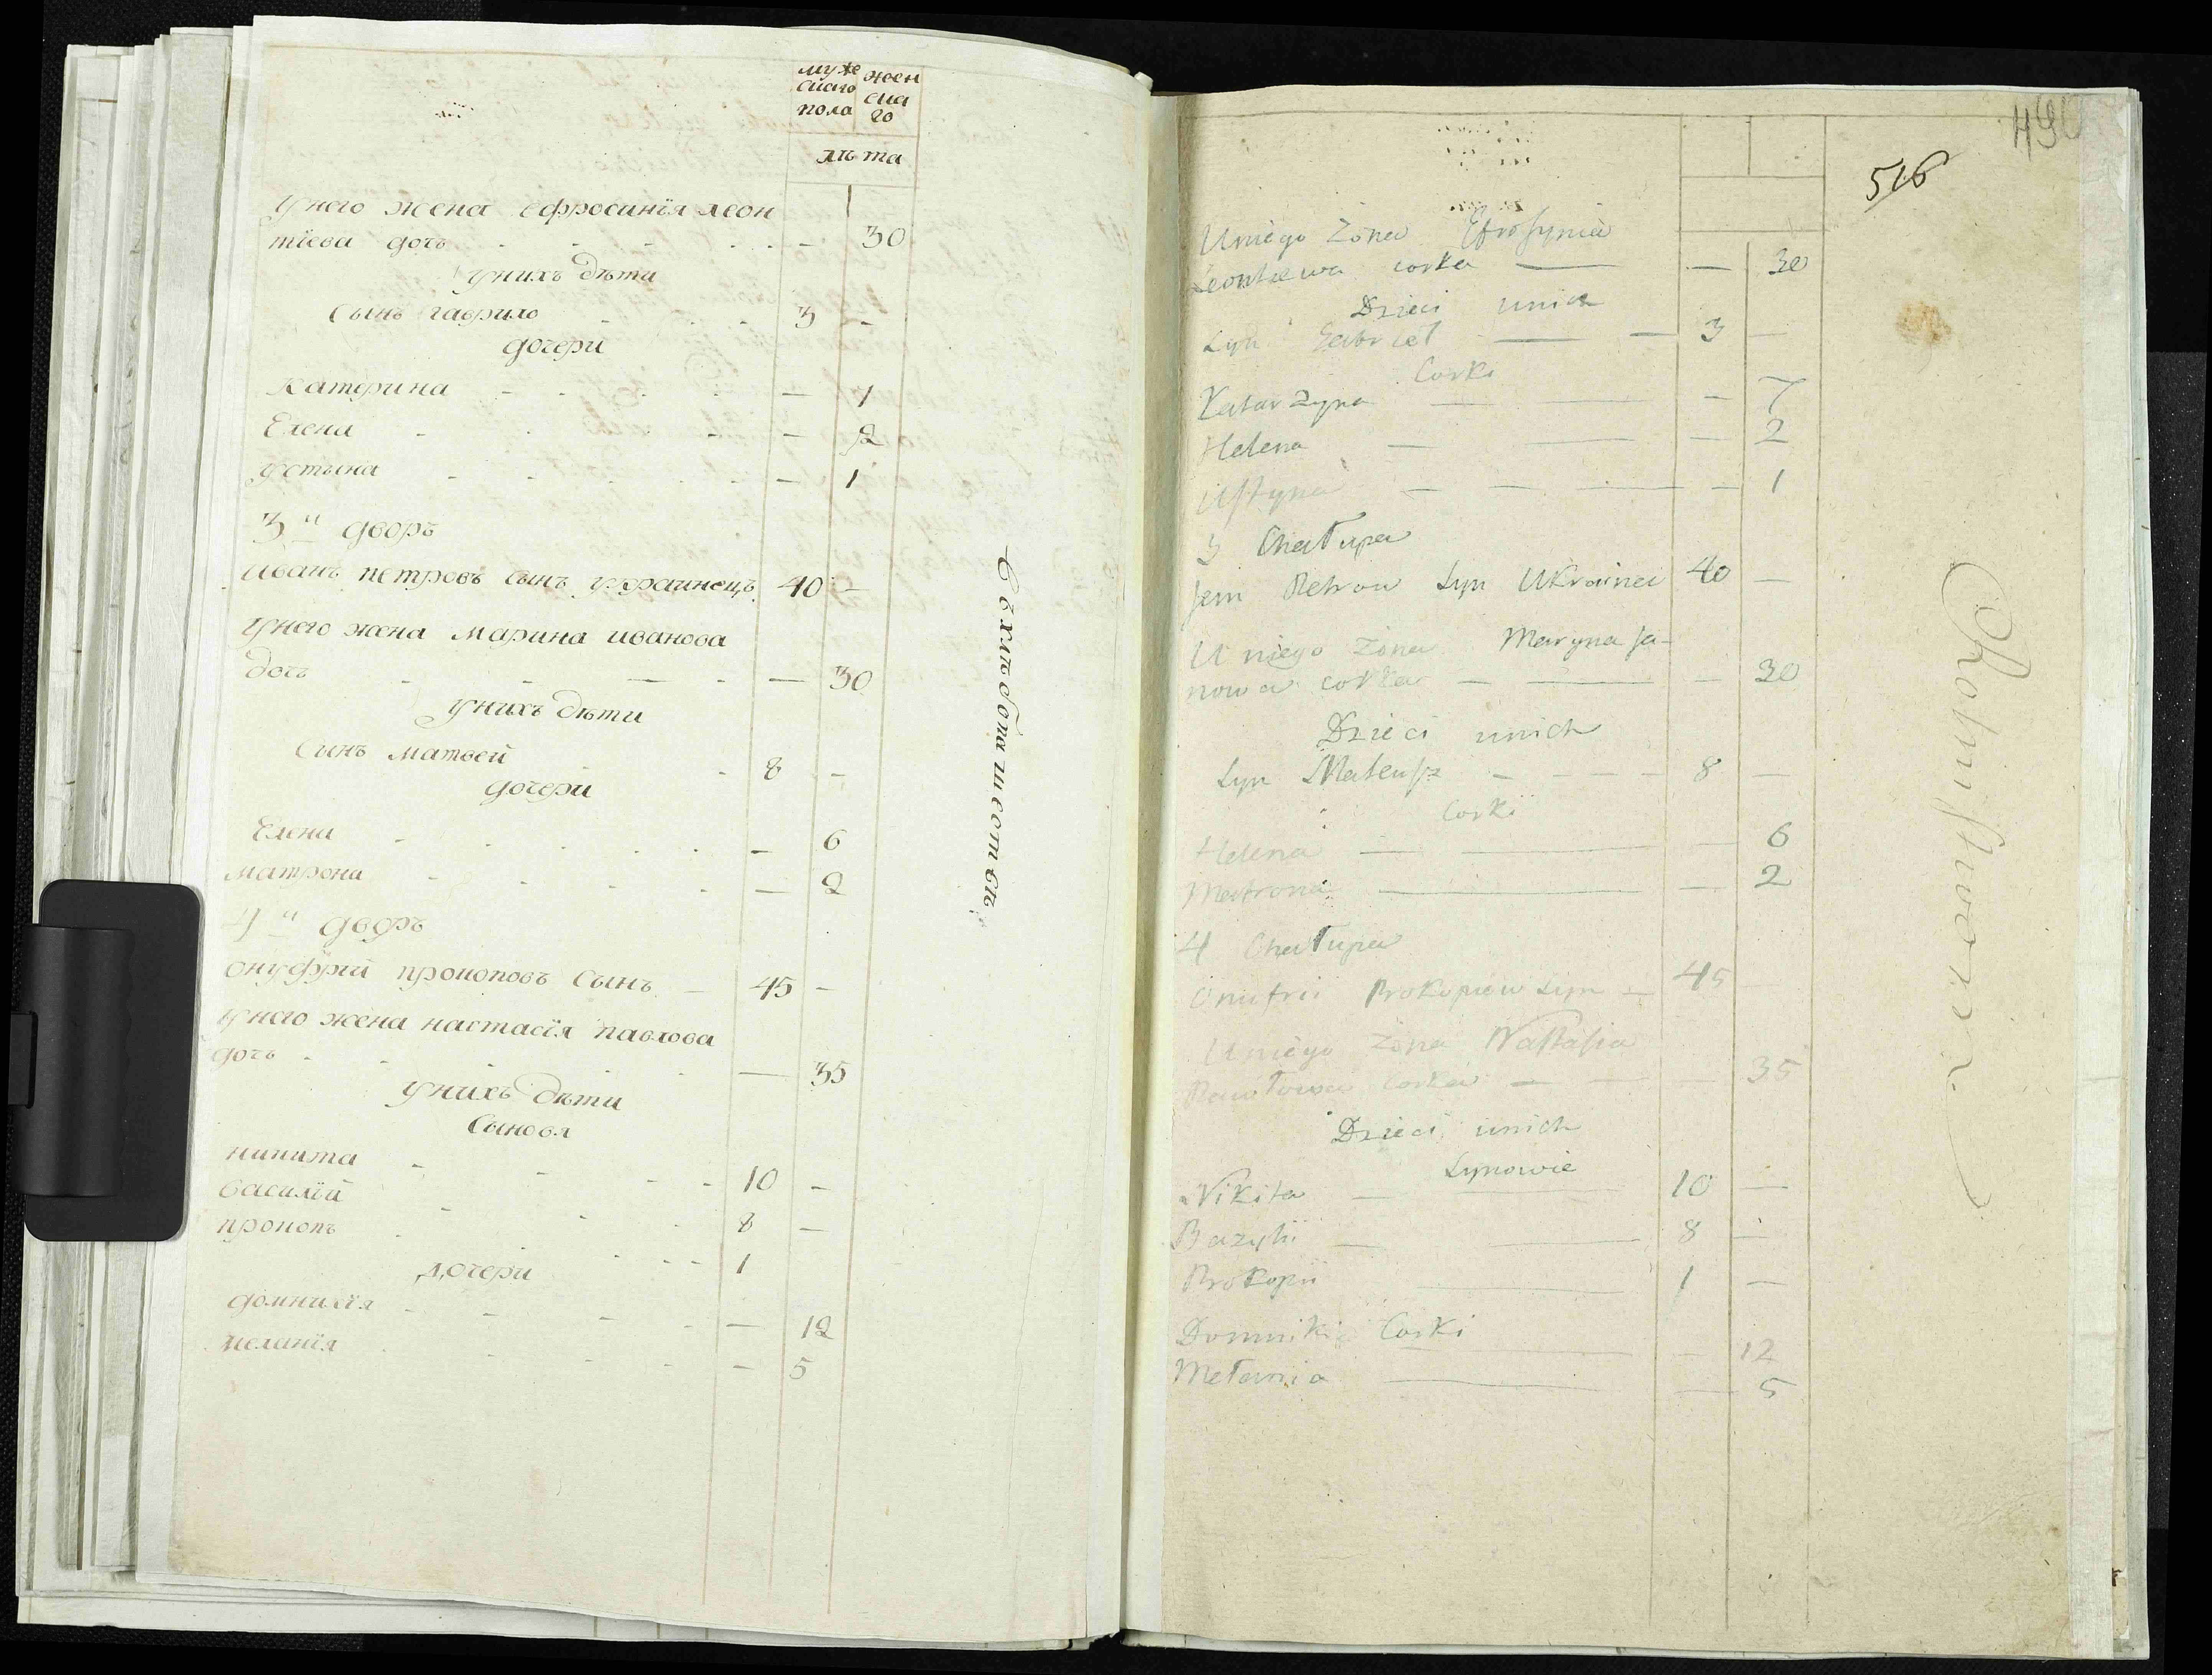 муже
скаго
пола
жен
ска
го
лѣта
Унего жена Ефросинїя леон
тїева дочь - - - - - - 30
Унихъ дѣти
Сынъ гаврило - - - 3 -
дочери
Катерина - - - - - 7
Елена - - - - - 2
устына - - - - - - 1
3й дворъ
Иванъ петровъ сынъ украинецъ 40 -
Унего жена марина иванова
дочь - - — - — 30
Унихъ дѣти
Сынъ матвей - - 8 -
дочери
Елена - - - - - — 6
матрона - - - - — 2
4й дворъ
Онуфрїи прокоповъ Сынъ — 45 -
Унего жена настасїя павлова
дочь - - - - — 35
Унихъ дѣти
Сыновя
никита - - - - 10 -
василїй - - - 8 —
прокопъ - - - - 1
дочери
домникїя - - - - — 12
меланїя - - - - — 5
хлѣбопашествѣ
490
516
Uniego Żona Efrosynia
Leontiewa corka — — 30
Dzieci unich
Syn Gabriel — — 3 —
Corki
Katarzyna — — - 7
Helena — — — 2
Ustyna — — — - 1
3 Chałupa
Jan Petrow Syn Ukrainec 40 —
U niego Żona Maryna Ja-
nowa corka — — — 30
Dzieci unich
Syn Mateusz - - - - 8 —
Corki
Helena — — — 6
Matrona — — 2
4 Chałupa
Onufrii Prokopiow Syn — 45 —
Uniego Żona Nastasia
Pawłowa Corka — — — 35
Dzieci unich
Synowie
Nikita — — 10 —
Bazyli — — 8 —
Prokopii — 1 —
Corki
Domnikia — — 12
Mełania — — 5